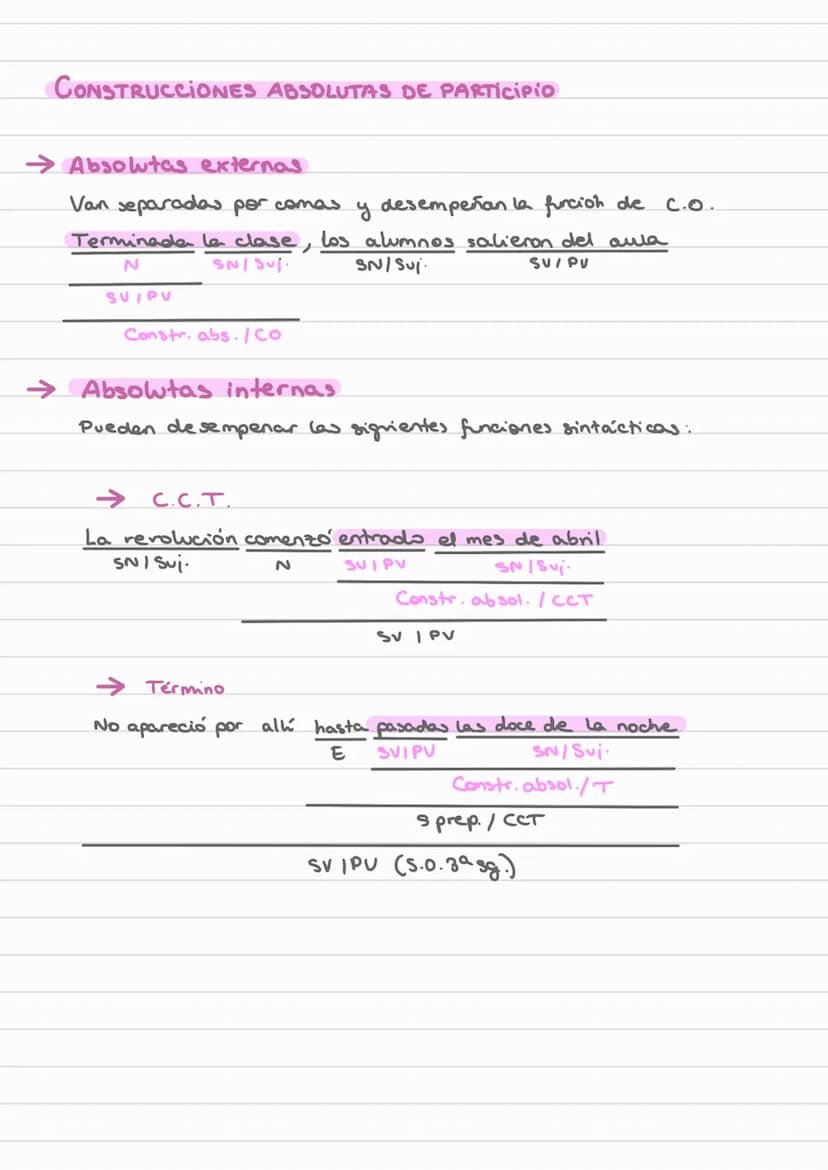 CONSTRUCCIONES ABSOLUTAS DE PARTICIPIO
→ Absolutas externas
Van separadas por comas y desempeñan la función de C.O.
Terminada la clase, los alumnos salieron del aula
N SN/Suj. SN/Suj. SV/PV
SV/PV
Constr. abs./CO
→ Absolutas internas
Pueden desempenar las siguientes funciones sintácticas:
→ C.C.T.
La revolución comenzó entrado el mes de abril
SN/Suj. N SV/PV SN/Suj.
Constr. absol./CCT
SV/PV
→ Término
No apareció por allí hasta pasadas las doce de la noche
E SV/PV SN/Suj.
Constr. absol./T
S prep./CCT
SV/PV (S.O. 3ª sg.)